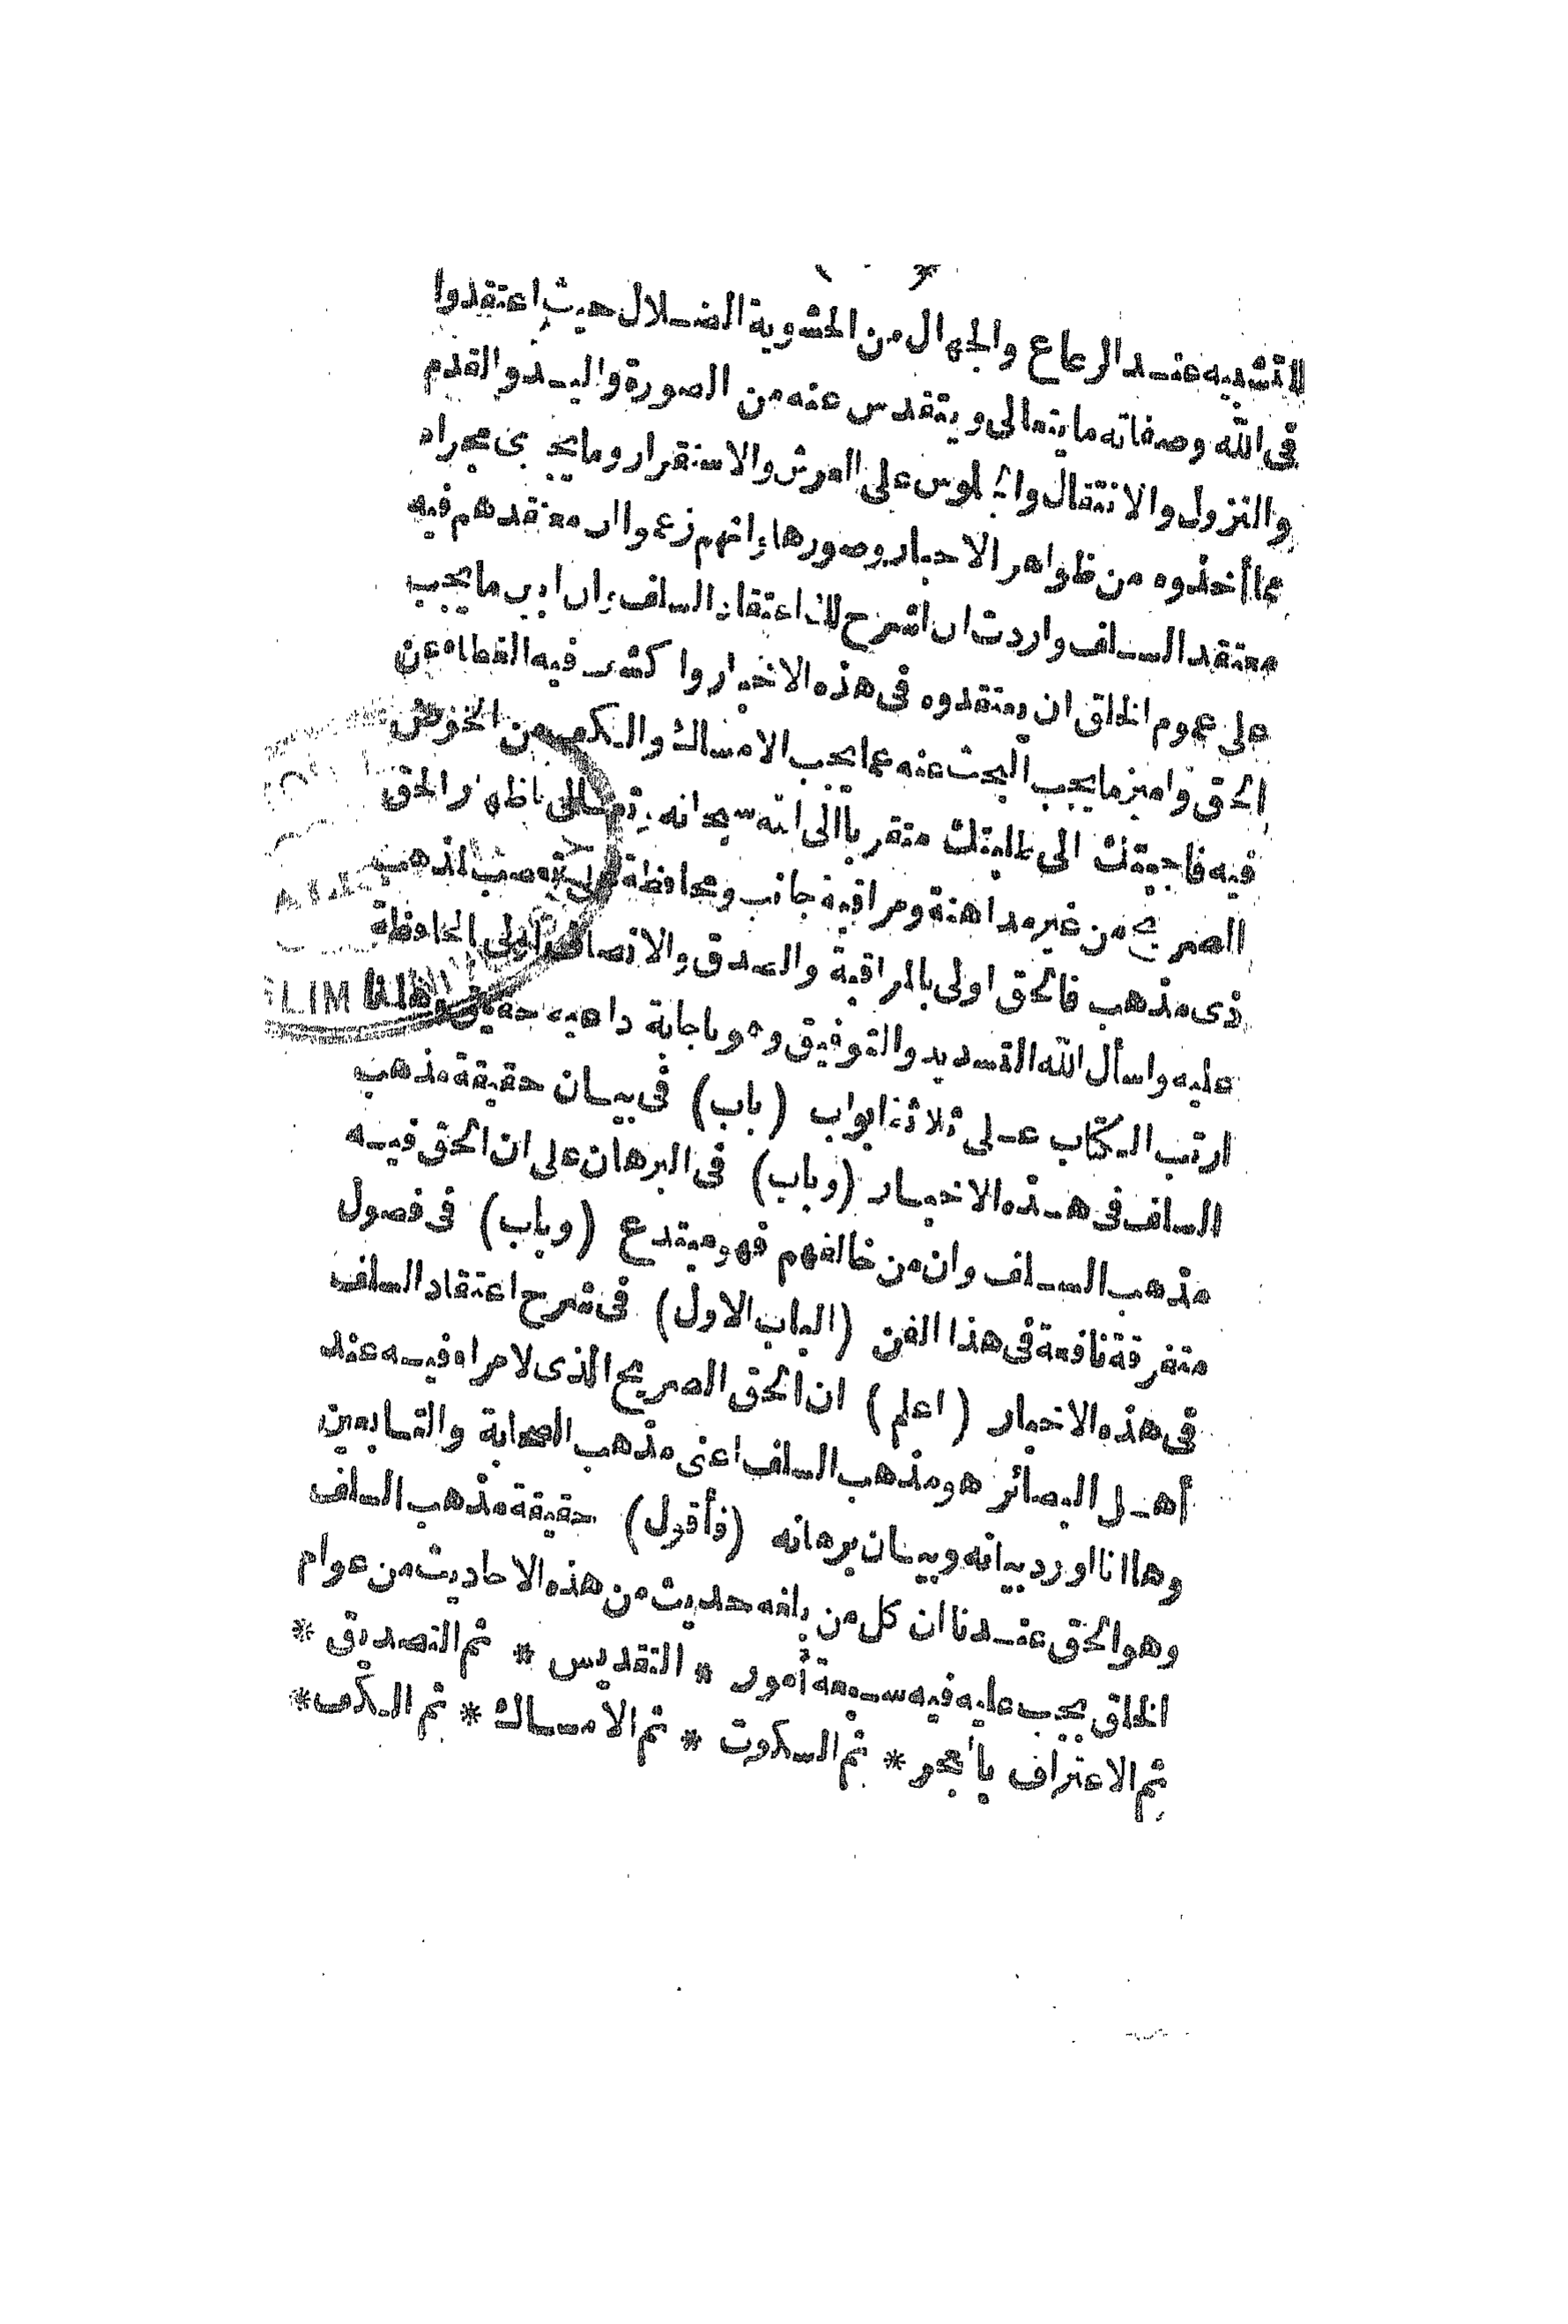 للتشبيه عند الرعاع والجهال من الحشوية الضلال حيث اعتقدوا
فى الله وصفاته ما يتعالى ويتقدس عنه من الصورة واليد والقدم
والنزول والانتقال والجلوس على العرش والاستقرار وما يجرى مجراه
مما أخذوه من ظواهر الاخبار وصورها وانهم زعموا ان معتقدهم فيه
معتقد السلف واردت ان اشرح لك اعتقاد السلف وان ابين ما يجب
على عموم الخلق ان يعتقدوه فى هذه الاخبار واكشف فيه الغطاء عن
الحق واميز ما يجب البحث عنه عما يجب الامساك والكف عن الخوض
فيه فاجبتك الى طلبتك متقربا الى الله سبحانه وتعالى باظهار الحق
الصريح من غير مداهنة ومراقبة جانب ومحافظة على تعصب لمذهب
ذى مذهب فالحق اولى بالمراقبة والصدق والانصاف اولى بالمحافظة
عليه واسأل الله التسديد والتوفيق وهو باجابة داعيه حقيق وها انا
ارتب الكتاب على ثلاثة ابواب (باب) فى بيان حقيقة مذهب
السلف فى هذه الاخبار (وباب) فى البرهان على ان الحق فيه
مذهب السلف وان من خالفهم فهو مبتدع (وباب) فى فصول
متفرقة نافعة فى هذا الفن (الباب الاول) فى شرح اعتقاد السلف
فى هذه الاخبار (اعلم) ان الحق الصريح الذى لا مراء فيه عند
أهل البصائر هو مذهب السلف اعنى مذهب الصحابة والتابعين
وها انا اورد بيانه وبيان برهانه (فأقول) حقيقة مذهب السلف
وهو الحق عندنا ان كل من بلغه حديث من هذه الاحاديث من عوام
الخلق يجب عليه فيه سبعة أمور * التقديس * ثم التصديق *
ثم الاعتراف بالعجز * ثم السكوت * ثم الامساك * ثم الكف *